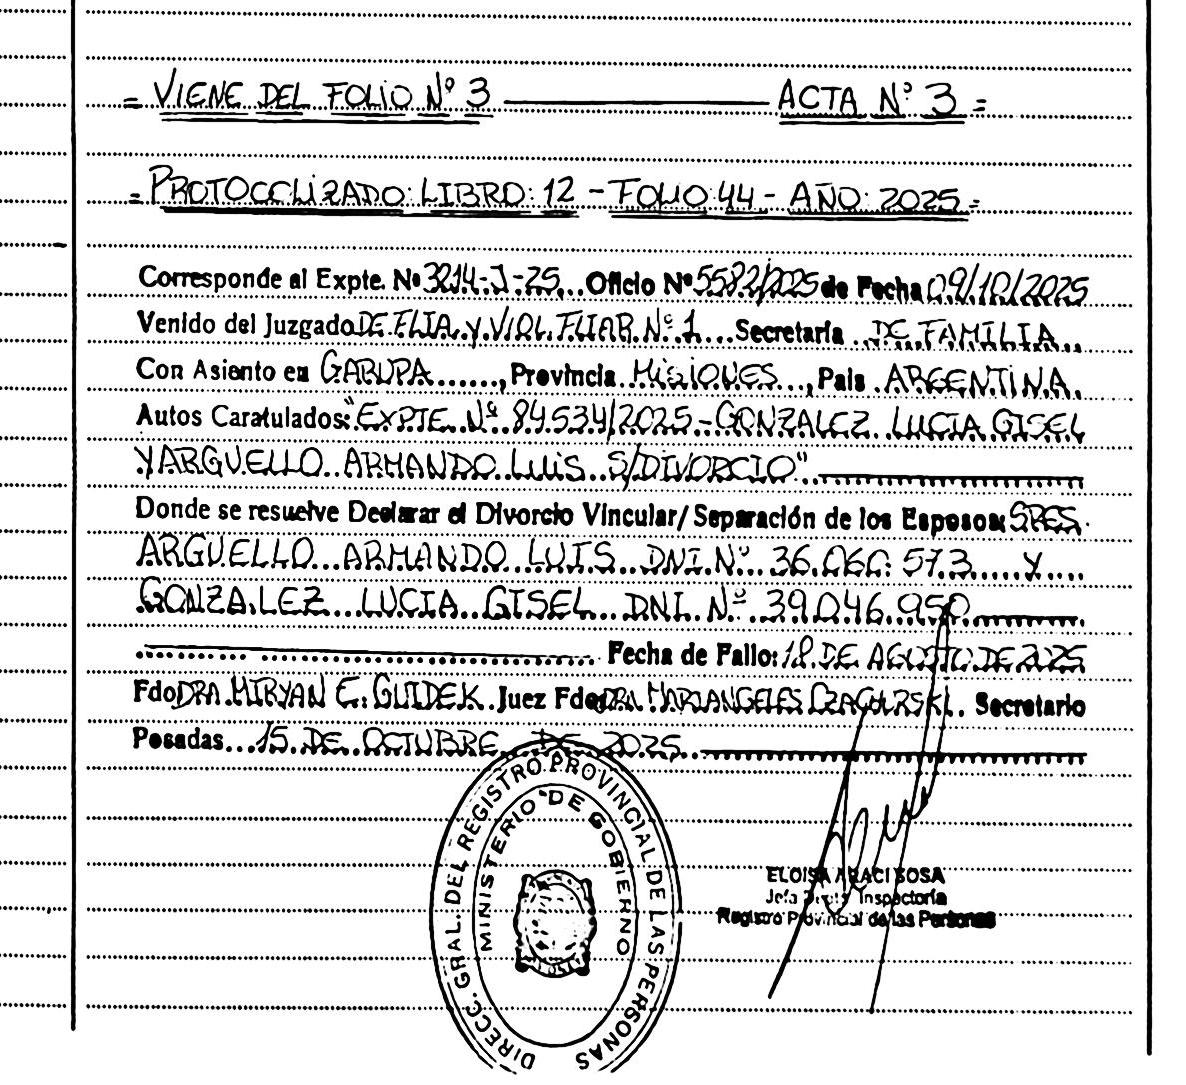 = VIENE DEL FOLIO Nº 3 ——— ACTA Nº 3 =
= PROTOCOLIZADO: LIBRO: 12 - FOLIO 44 - AÑO: 2025 =
Corresponde al Expte. Nº 3214-J-25... Oficio Nº 5582/2025 de Fecha 09/10/2025
Venido del Juzgado DE FLIA. y VIOL. FLIAR. Nº 1... Secretaría ...DE FAMILIA...
Con Asiento en GARUPA......, Provincia MISIONES..., País .ARGENTINA.
Autos Caratulados: "EXPTE. Nº 84.534/2025 - GONZALEZ LUCIA GISEL
Y ARGUELLO ARMANDO LUIS S/DIVORCIO"
Donde se resuelve Declarar el Divorcio Vincular/ Separación de los Esposos: SRES.
ARGUELLO ARMANDO LUIS DNI. Nº 36.060.573 Y
GONZALEZ LUCIA GISEL DNI. Nº 39.046.950
Fecha de Fallo: 18 DE AGOSTO DE 2025
Fdo DRA. MIRYAN E. GUIDEK. Juez Fdo DRA. MARIANGELES Secretario
Posadas... 15 DE OCTUBRE DE 2025
DIRECC. GRAL. DEL REGISTRO PROVINCIAL DE LAS PERSONAS
MINISTERIO DE GOBIERNO
ELOISA ARACI SOSA
Jefa Inspectoría
Registro Provincial de las Personas